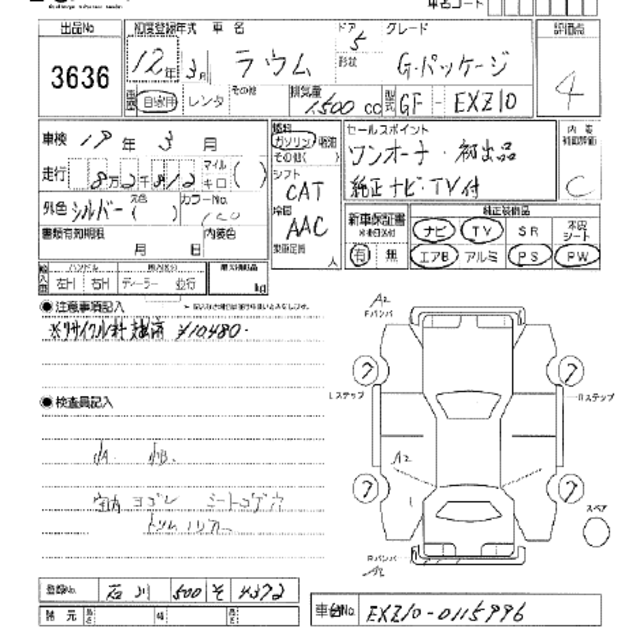 車名コード
出品No
3636
初度登録年式 車名
12年 3月
ラウム
ドア 5
形状
グレード
G-パッケージ
評価点
4
自家用 レンタ
その他
排気量
1500 cc
型式
GF - EXZ10
車検 19年 3月
走行 8万2千812
マイル
キロ
外色 シルバー
元色
カラーNo.
書類有効期限
月 日
内装色
燃料
ガソリン 軽油
その他( )
シフト
CAT
冷房
AAC
乗車定員
人
セールスポイント
ワンオーナ・初出品
純正ナビ・TV付
内装
C
新車保証書
有 無
純正装備品
ナビ TV SR 本皮シート
エアB アルミ PS PW
輸入車
ハンドル
左H 右H ディーラー 並行
最大積載量
kg
注意事項記入
※リサイクル料 ¥10480-
検査員記入
室内 ヨゴレ シートコゲ穴
A2
Fバンパ
Lステップ
Rステップ
A2
スペア
Rバンパ
A2
登録No. 石川 500 そ 4372
諸元
車台No. EXZ10-0115996